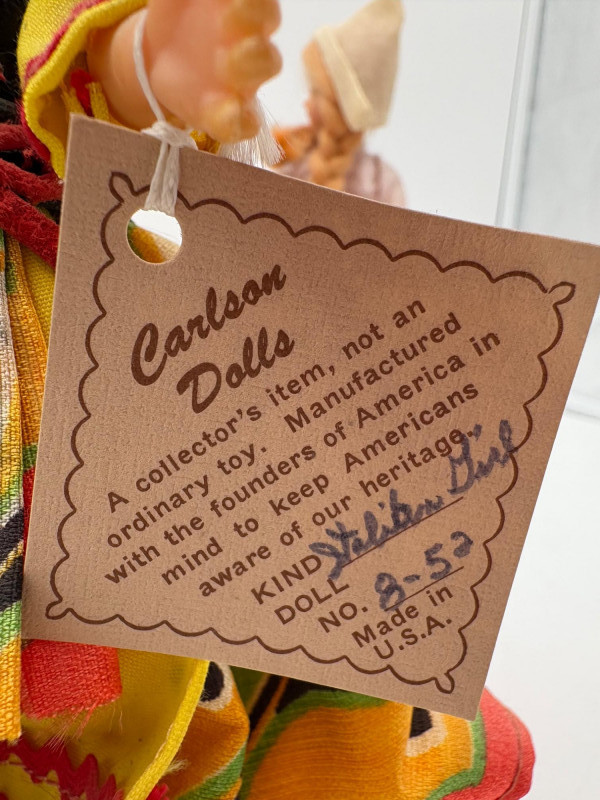 Carlson
Dolls
A collector's item, not an
ordinary toy. Manufactured
with the founders of America in
mind to keep Americans
aware of our heritage.
KIND Italian Girl
DOLL
NO. 8-52
Made in
U.S.A.